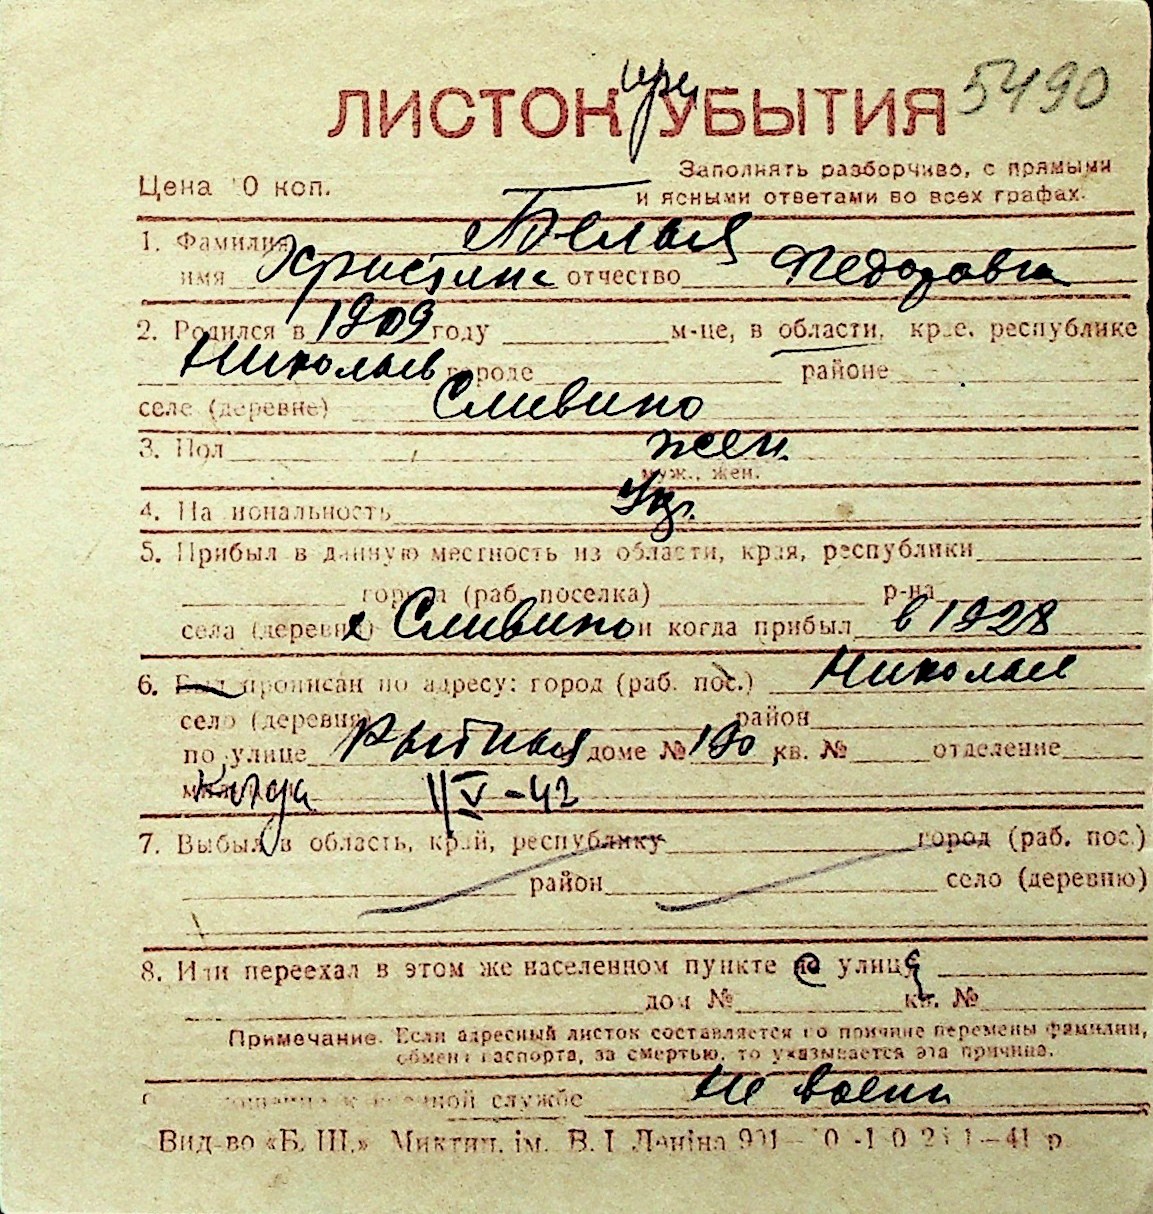 ЛИСТОК при УБЫТИЯ 5490
Цена 0 коп.
Заполнять разборчиво, с прямыми
и ясными ответами во всех графах.
1. Фамилия Белая
имя Христина отчество Федоровна
2. Родился в 1909 году м-це, в области, крае, республике
Николаев городе районе
селе (деревне) Сливино
3. Пол жен.
муж., жен.
4. Национальность Укр.
5. Прибыл в данную местность из области, края, республики
города (раб. поселка) р-на
села (деревни) с Сливино и когда прибыл в 1928
6. Был прописан по адресу: город (раб. пос.) Николаев
село (деревня) район
по улице Рыбная доме № 190 кв. № отделение
Куда II V-42
7. Выбыл в область, край, республику город (раб. пос.)
район село (деревню)
8. Или переехал в этом же населенном пункте по улице
дом № кв. №
Примечание. Если адресный листок составляется по причине перемены фамилии,
обмена паспорта, за смертью, то указывается эта причина.
военной службе не воен
Вид-во «Б. Ш.» Микт ім. В. І. Леніна 41 р.